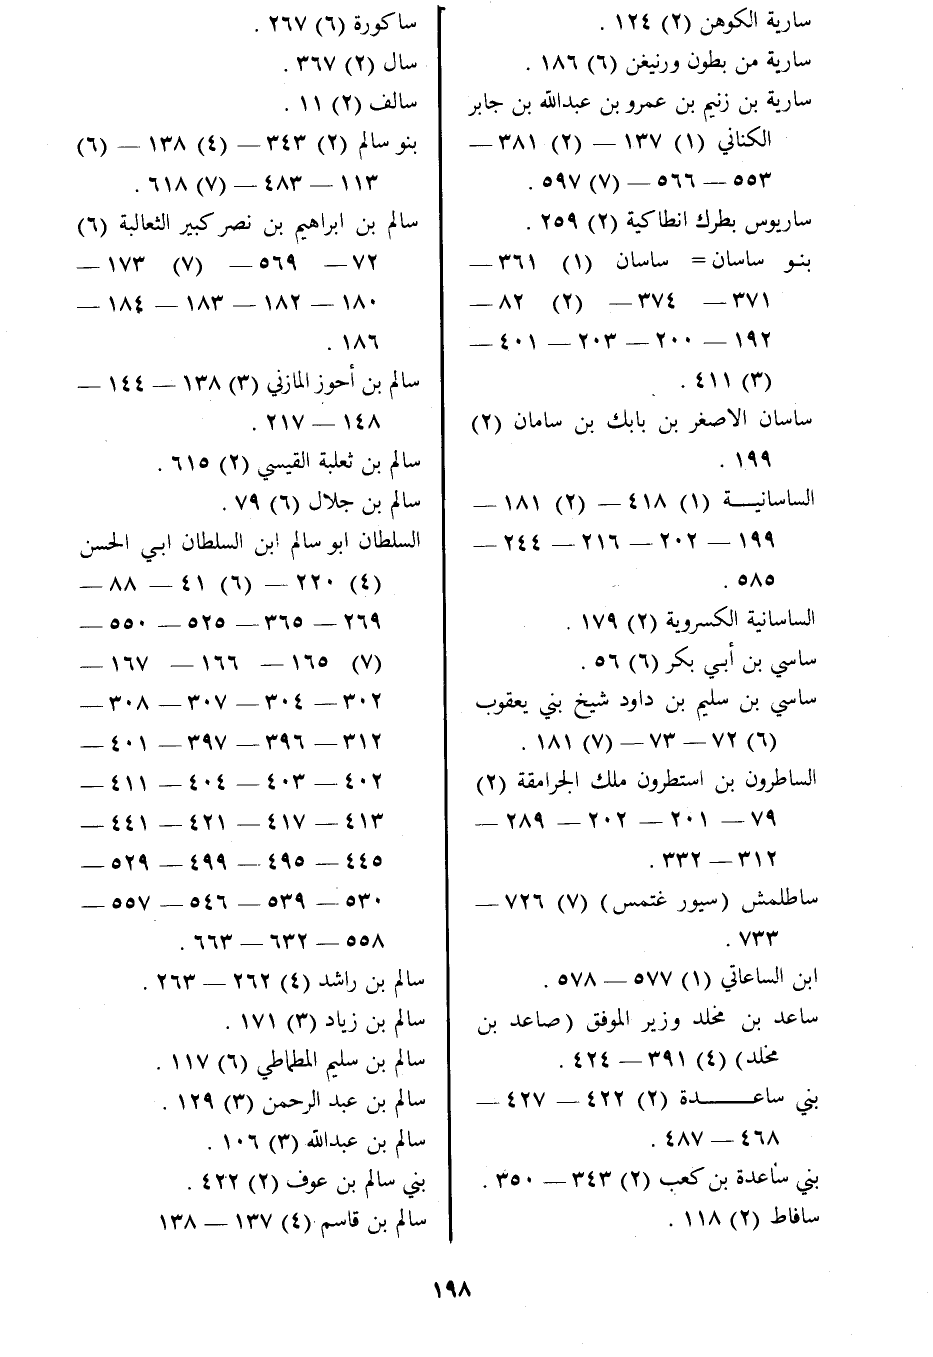 سارية الكوهن (٢) ١٢٤ .
سارية من بطون ورنيغن (٦) ١٨٦ .
سارية بن زنيم بن عمرو بن عبدالله بن جابر
الكناني (١) ١٣٧ — (٢) ٣٨١ —
٥٥٣ — ٥٦٦ — (٧) ٥٩٧ .
ساريوس بطرك انطاكية (٢) ٢٥٩ .
بنو ساسان = ساسان (١) ٣٦١ —
٣٧١ — ٣٧٤ — (٢) ٨٢ —
١٩٢ — ٢٠٠ — ٢٠٣ — ٤٠١ —
(٣) ٤١١ .
ساسان الاصغر بن بابك بن سامان (٢)
١٩٩ .
الساسانيـــة (١) ٤١٨ — (٢) ١٨١ —
١٩٩ — ٢٠٢ — ٢١٦ — ٢٤٤ —
٥٨٥ .
الساسانية الكسروية (٢) ١٧٩ .
ساسي بن أبي بكر (٦) ٥٦ .
ساسي بن سليم بن داود شيخ بني يعقوب
(٦) ٧٢ — ٧٣ — (٧) ١٨١ .
الساطرون بن استطرون ملك الجرامقة (٢)
٧٩ — ٢٠١ — ٢٠٢ — ٢٨٩ —
٣١٢ — ٣٣٢ .
ساطلمش (سيور غتمس) (٧) ٧٢٦ —
٧٣٣ .
ابن الساعاتي (١) ٥٧٧ — ٥٧٨ .
ساعد بن مخلد وزير الموفق (صاعد بن
مخلد) (٤) ٣٩١ — ٤٢٤ .
بني ساعـــــدة (٢) ٤٢٢ — ٤٢٧ —
٤٦٨ — ٤٨٧ .
بني ساعدة بن كعب (٢) ٣٤٣ — ٣٥٠ .
سافاط (٢) ١١٨ .
ساكورة (٦) ٢٦٧ .
سال (٢) ٣٦٧ .
سالف (٢) ١١ .
بنو سالم (٢) ٣٤٣ — (٤) ١٣٨ — (٦)
١١٣ — ٤٨٣ — (٧) ٦١٨ .
سالم بن ابراهيم بن نصر كبير الثعالبة (٦)
٧٢ — ٥٦٩ — (٧) ١٧٣ —
١٨٠ — ١٨٢ — ١٨٣ — ١٨٤ —
١٨٦ .
سالم بن أحوز المازني (٣) ١٣٨ — ١٤٤ —
١٤٨ — ٢١٧ .
سالم بن ثعلبة القيسي (٢) ٦١٥ .
سالم بن جلال (٦) ٧٩ .
السلطان ابو سالم ابن السلطان ابي الحسن
(٤) ٢٢٠ — (٦) ٤١ — ٨٨ —
٢٦٩ — ٣٦٥ — ٥٢٥ — ٥٥٠ —
(٧) ١٦٥ — ١٦٦ — ١٦٧ —
٣٠٢ — ٣٠٤ — ٣٠٧ — ٣٠٨ —
٣١٢ — ٣٩٦ — ٣٩٧ — ٤٠١ —
٤٠٢ — ٤٠٣ — ٤٠٤ — ٤١١ —
٤١٣ — ٤١٧ — ٤٢١ — ٤٤١ —
٤٤٥ — ٤٩٥ — ٤٩٩ — ٥٢٩ —
٥٣٠ — ٥٣٩ — ٥٤٦ — ٥٥٧ —
٥٥٨ — ٦٣٢ — ٦٦٣ .
سالم بن راشد (٤) ٢٦٢ — ٢٦٣ .
سالم بن زياد (٣) ١٧١ .
سالم بن سليم المطماطي (٦) ١١٧ .
سالم بن عبد الرحمن (٣) ١٢٩ .
سالم بن عبدالله (٣) ١٠٦ .
بني سالم بن عوف (٢) ٤٢٢ .
سالم بن قاسم (٤) ١٣٧ — ١٣٨
١٩٨